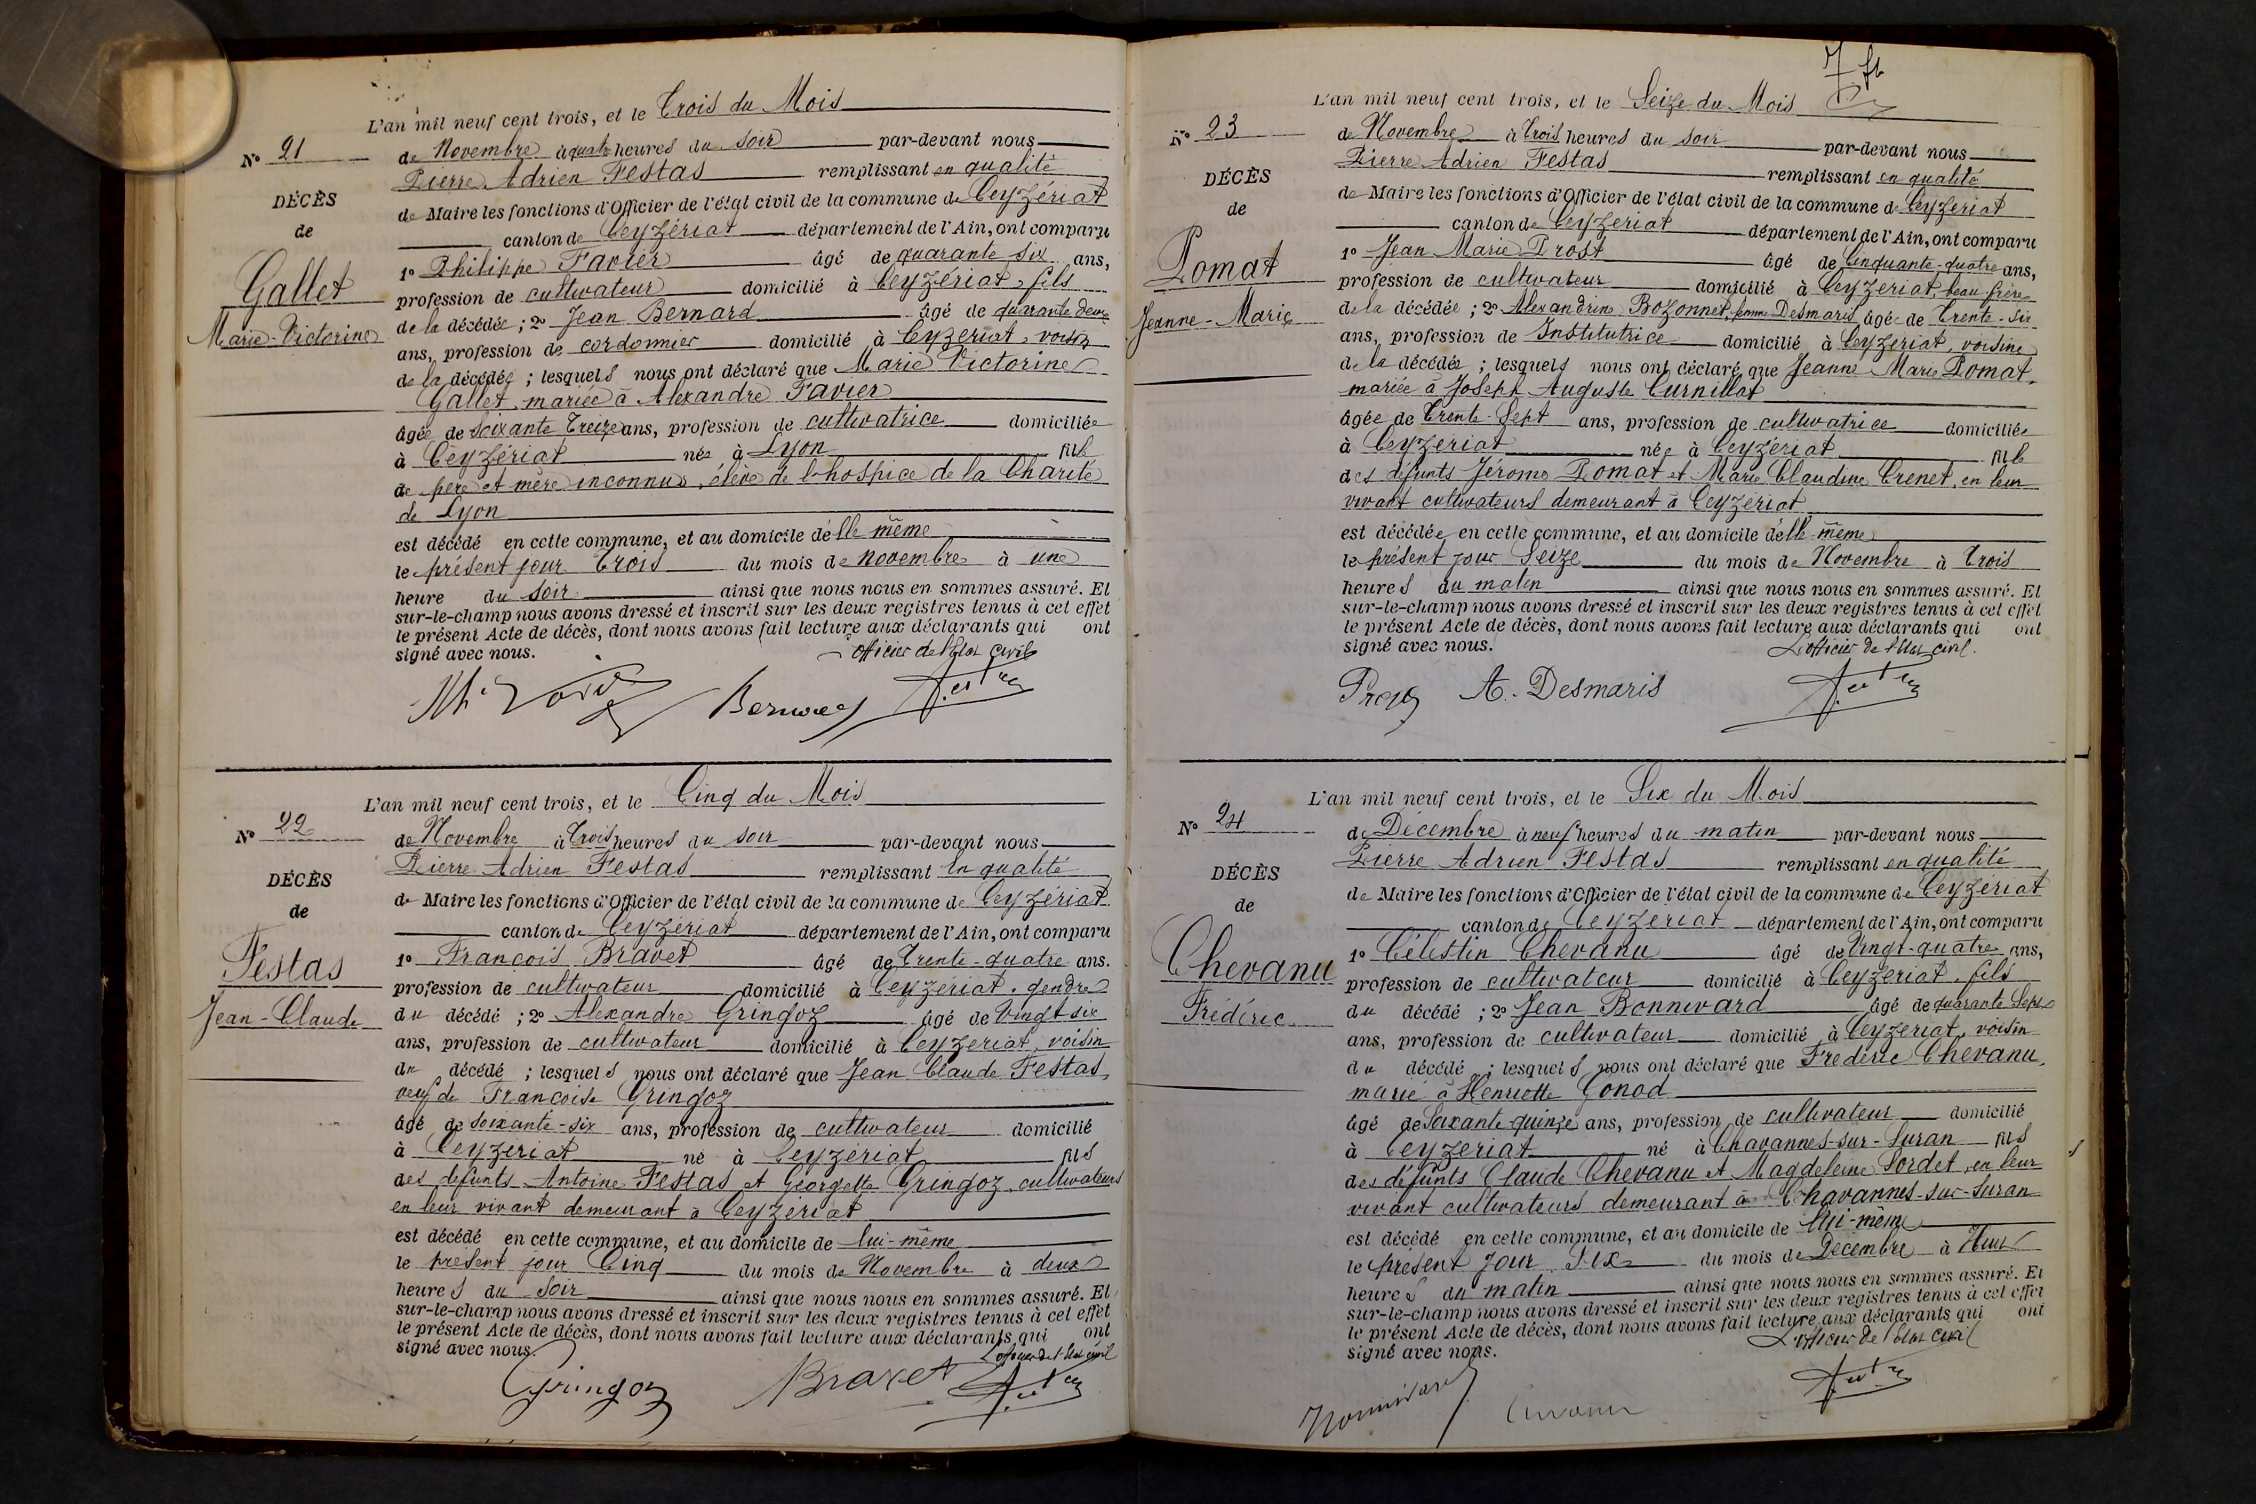 L'an mil neuf cent trois, et le Trois du Mois
N° 21
de Novembre à quatre heures du soir par-devant nous
Pierre Adrien Festas remplissant en qualité
DÉCÈS
de Maire les fonctions d'Officier de l'état civil de la commune de Ceyzériat
de
canton de Ceyzériat département de l'Ain, ont comparu
1° Philippe Favier âgé de quarante six ans,
Gallet
profession de cultivateur domicilié à Ceyzériat, fils
de la décédée ; 2° Jean Bernard âgé de quarante deux
Marie-Victorine
ans, profession de cordonnier domicilié à Ceyzériat, voisin
de la décédée ; lesquels nous ont déclaré que Marie Victorine
Gallet, mariée à Alexandre Favier
âgée de soixante treize ans, profession de cultivatrice domiciliée
à Ceyzériat née à Lyon fille
de père et mère inconnus, élève de l'hospice de la Charité
de Lyon
est décédé en cette commune, et au domicile d'elle même
le présent jour Trois du mois de novembre à une
heure du soir ainsi que nous nous en sommes assuré. Et
sur-le-champ nous avons dressé et inscrit sur les deux registres tenus à cet effet
le présent Acte de décès, dont nous avons fait lecture aux déclarants qui ont
signé avec nous. officier de l'état civil
Bernard Festas
L'an mil neuf cent trois, et le Cinq du Mois
N° 22
de Novembre à Trois heures du soir par-devant nous
Pierre Adrien Festas remplissant en qualité
DÉCÈS
de Maire les fonctions d'Officier de l'état civil de la commune de Ceyzériat
de
canton de Ceyzériat département de l'Ain, ont comparu
1° François Bravet âgé de Trente-quatre ans.
Festas
profession de cultivateur domicilié à Ceyzériat, gendre
Jean-Claude
du décédé ; 2° Alexandre Gringoz âgé de Vingt six
ans, profession de cultivateur domicilié à Ceyzeriat, voisin
du décédé ; lesquels nous ont déclaré que Jean Claude Festas,
veuf de Francoise Gringoz
âgé de soixante-six ans, profession de cultivateur domicilié
à Ceyzériat né à Ceyzériat fils
des defunts Antoine Festas et Georgette Gringoz, cultivateurs
en leur vivant demeurant à Ceyzeriat
est décédé en cette commune, et au domicile de lui-même
le présent jour Cinq du mois de Novembre à deux
heures du soir ainsi que nous nous en sommes assuré. Et
sur-le-champ nous avons dressé et inscrit sur les deux registres tenus à cet effet
le présent Acte de décès, dont nous avons fait lecture aux déclarants qui ont
signé avec nous. L'officier de l'état civil
Gringoz Bravet Festas
7
L'an mil neuf cent trois, et le Seize du Mois
N° 23
de Novembre à Trois heures du soir par-devant nous
Pierre Adrien Festas remplissant en qualité
DÉCÈS
de Maire les fonctions d'Officier de l'état civil de la commune de Ceyzeriat
de
canton de Ceyzeriat département de l'Ain, ont comparu
1° Jean Marie Prost âgé de Cinquante-quatre ans,
Pomat
profession de cultivateur domicilié à Ceyzeriat, beau frère
Jeanne-Marie
de la décédée ; 2° Alexandrine Bozonnet, femme Desmaris âgé de Trente-six
ans, profession de Institutrice domicilié à Ceyzeriat, voisine
de la décédée ; lesquels nous ont déclaré que Jeanne Marie Pomat,
mariée à Joseph Auguste Curnillat
âgée de Trente-Sept ans, profession de cultivatrice domiciliée
à Ceyzeriat née à Ceyzériat fille
des défunts Jérome Pomat et Marie Claudine Crenet, en leur
vivant cultivateurs demeurant à Ceyzeriat
est décédée en cette commune, et au domicile d'elle-même
le présent jour Seize du mois de Novembre à Trois
heures du matin ainsi que nous nous en sommes assuré. Et
sur-le-champ nous avons dressé et inscrit sur les deux registres tenus à cet effet
le présent Acte de décès, dont nous avons fait lecture aux déclarants qui ont
signé avec nous. L'officier de l'état civil.
Prost A. Desmaris Festas
L'an mil neuf cent trois, et le Six du Mois
N° 24
de Décembre à neuf heures du matin par-devant nous
Pierre Adrien Festas remplissant en qualité
DÉCÈS
de Maire les fonctions d'Officier de l'état civil de la commune de Ceyzériat
de
canton de Ceyzeriat département de l'Ain, ont comparu
1° Célestin Chevanu âgé de Vingt-quatre ans,
Chevanu
profession de cultivateur domicilié à Ceyzeriat, fils
Frédéric
du décédé ; 2° Jean Bonnivard âgé de quarante Sept
ans, profession de cultivateur domicilié à Ceyzeriat, voisin
du décédé ; lesquels nous ont déclaré que Frédéric Chevanu,
marié à Henriette Conod
âgé de Soixante-quinze ans, profession de cultivateur domicilié
à Ceyzeriat né à Chavannes-sur-Suran fils
des défunts Claude Chevanu et Magdeleine Sordet, en leur
vivant cultivateurs demeurant à Chavannes-sur-Suran
est décédé en cette commune, et au domicile de lui-même
le présent jour Six du mois de Décembre à Huit
heures du matin ainsi que nous nous en sommes assuré. Et
sur-le-champ nous avons dressé et inscrit sur les deux registres tenus à cet effet
le présent Acte de décès, dont nous avons fait lecture aux déclarants qui ont
signé avec nous. L'officier de l'état civil
Bonnivard Festas